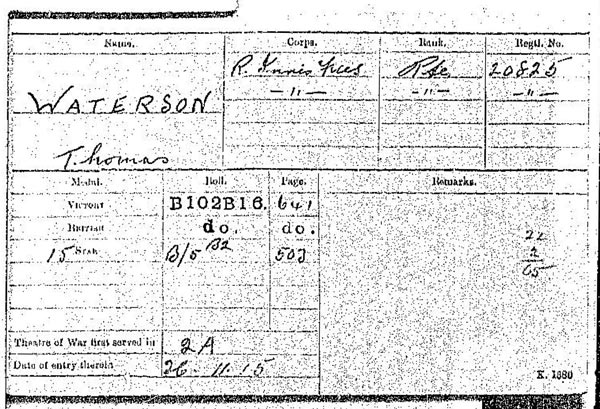 Name. Corps. Rank. Regtl. No.
R. Innis Fus Pte 20825
WATERSON —"— —"— —"—
Thomas
Medal. Roll. Page. Remarks.
VICTORY B102B16. 641
BRITISH do. do.
15 STAR B/5 B2 503
22
2
65
Theatre of War first served in 2A
Date of entry therein 26.11.15
K. 1380